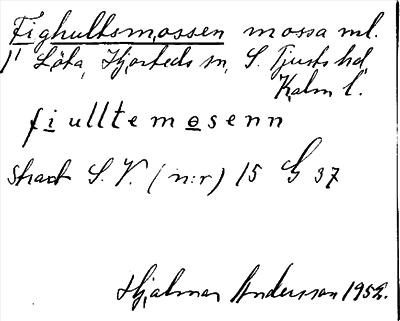 Fighultsmossen mossa ml.
Löta, Hjorteds sn, S. Tjusts hd,
Kalm l.
fiulltemosenn
strax S. V. (n:r) 15 G 37
Hjalmar Andersson 1952.